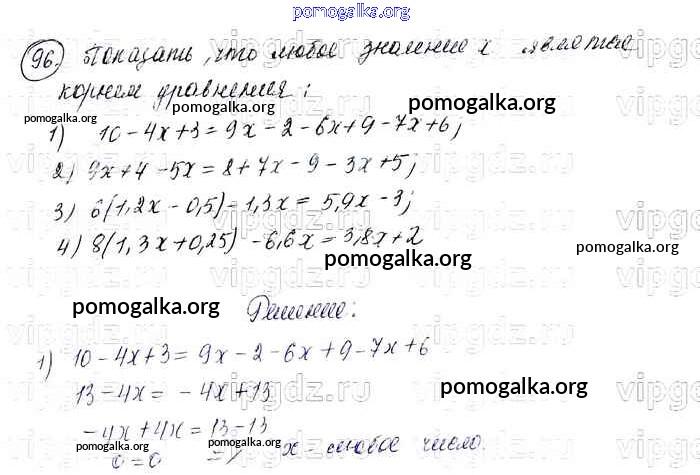 pomogalka.org
96. Показать, что любое значение x является
корнем уравнения:
pomogalka.org
pomogalka.org
1) 10-4x+3=9x-2-6x+9-7x+6;
2) 9x+4-5x=8+7x-9-3x+5;
3) 6(1,2x-0,5)-1,3x=5,9x-3;
4) 8(1,3x+0,25)-6,6x=3,8x+2
pomogalka.org
pomogalka.org
pomogalka.org
Решение:
1) 10-4x+3=9x-2-6x+9-7x+6
13-4x=-4x+13
pomogalka.org
-4x+4x=13-13
pomogalka.org
pomogalka.org
0=0 => x - любое число.